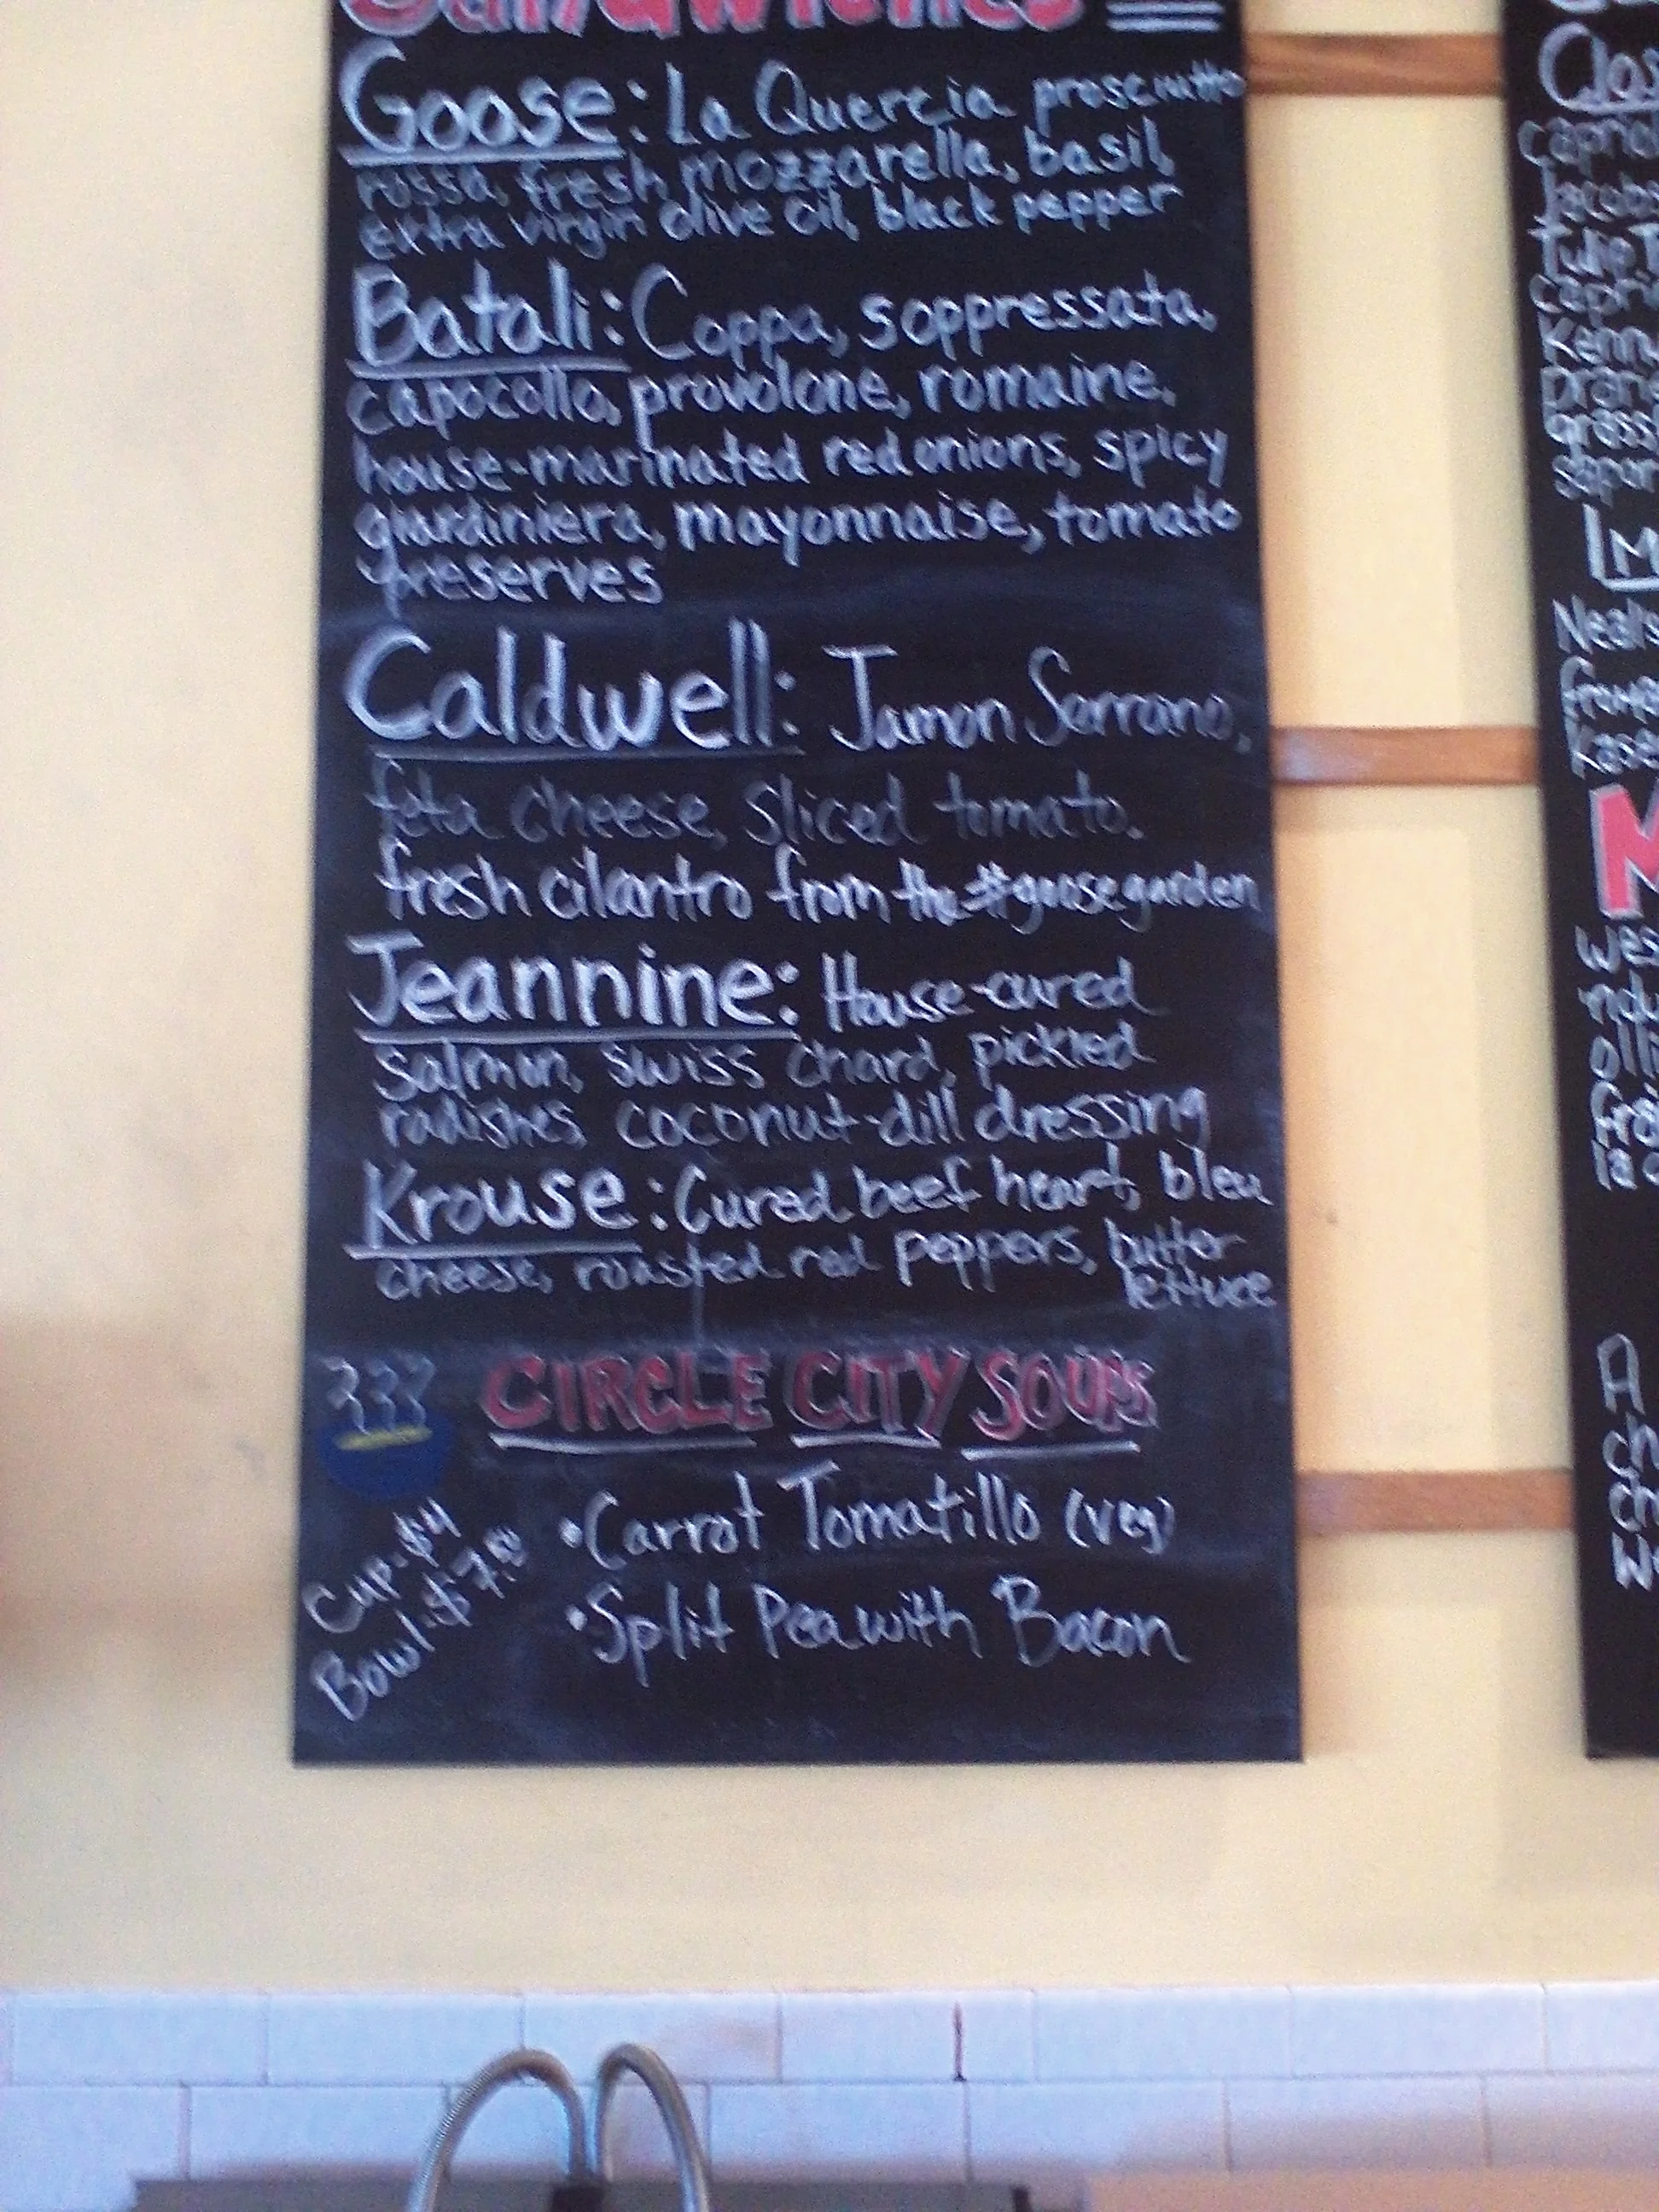 Sandwiches
Goose: La Quercia prosciutto
rossa, fresh mozzarella, basil,
extra virgin olive oil, black pepper
Batali: Coppa, soppressata,
capocollo, provolone, romaine,
house-marinated red onions, spicy
giardiniera, mayonnaise, tomato
preserves
Caldwell: Jamon Serrano,
feta cheese, sliced tomato,
fresh cilantro from the #goosegarden
Jeannine: House-cured
salmon, swiss chard, pickled
radishes, coconut-dill dressing
Krouse: Cured beef heart, bleu
cheese, roasted red peppers, butter
lettuce
CIRCLE CITY SOUPS
Cup-$4
Bowl-$7.00
•Carrot Tomatillo (veg)
•Split Pea with Bacon